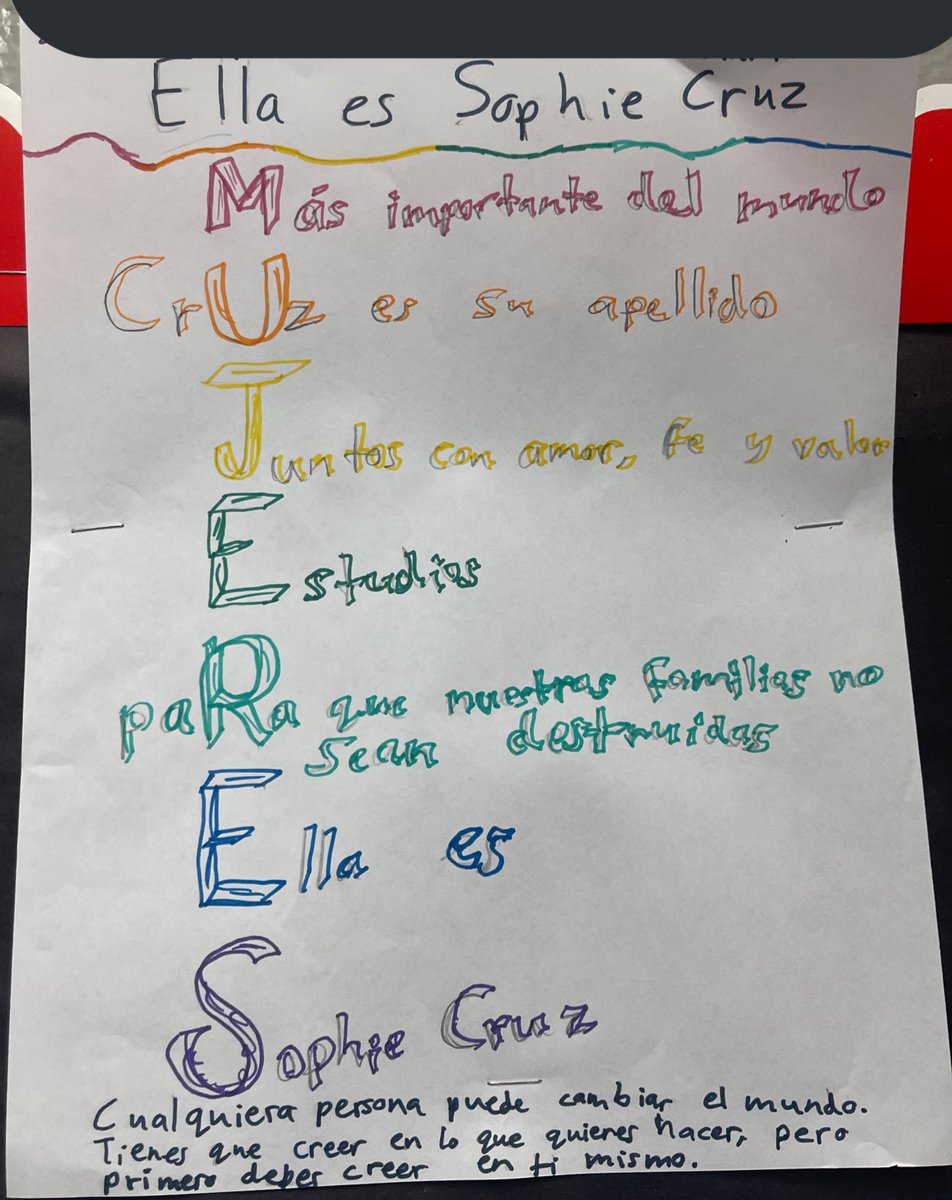 Ella es Sophie Cruz
Más importante del mundo
CrUz es su apellido
Juntos con amor, fe y valor
Estudios
paRa que nuestras familias no
sean destruidas
Ella es
Sophie Cruz
Cualquiera persona puede cambiar el mundo.
Tienes que creer en lo que quieres hacer, pero
primero debes creer en ti mismo.